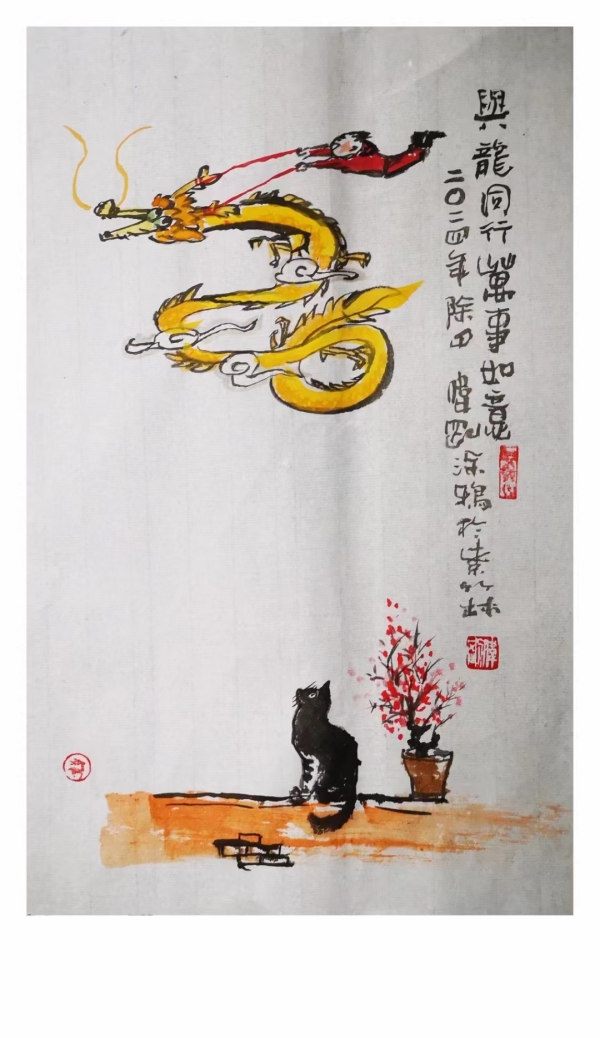 與龍同行萬事如意
二〇二四年除夕 涂鴉於紫竹林